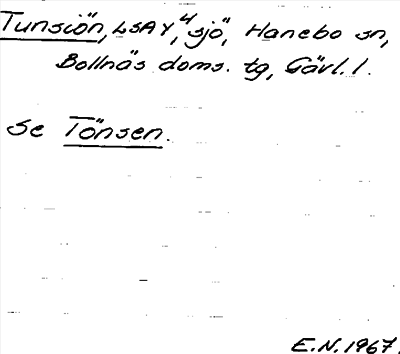 Tunsiön, LSA Y, 4 sjö, Hanebo sn,
Bollnäs doms. tg, Gävl. l.
Se Tönsen.
E.N. 1967.